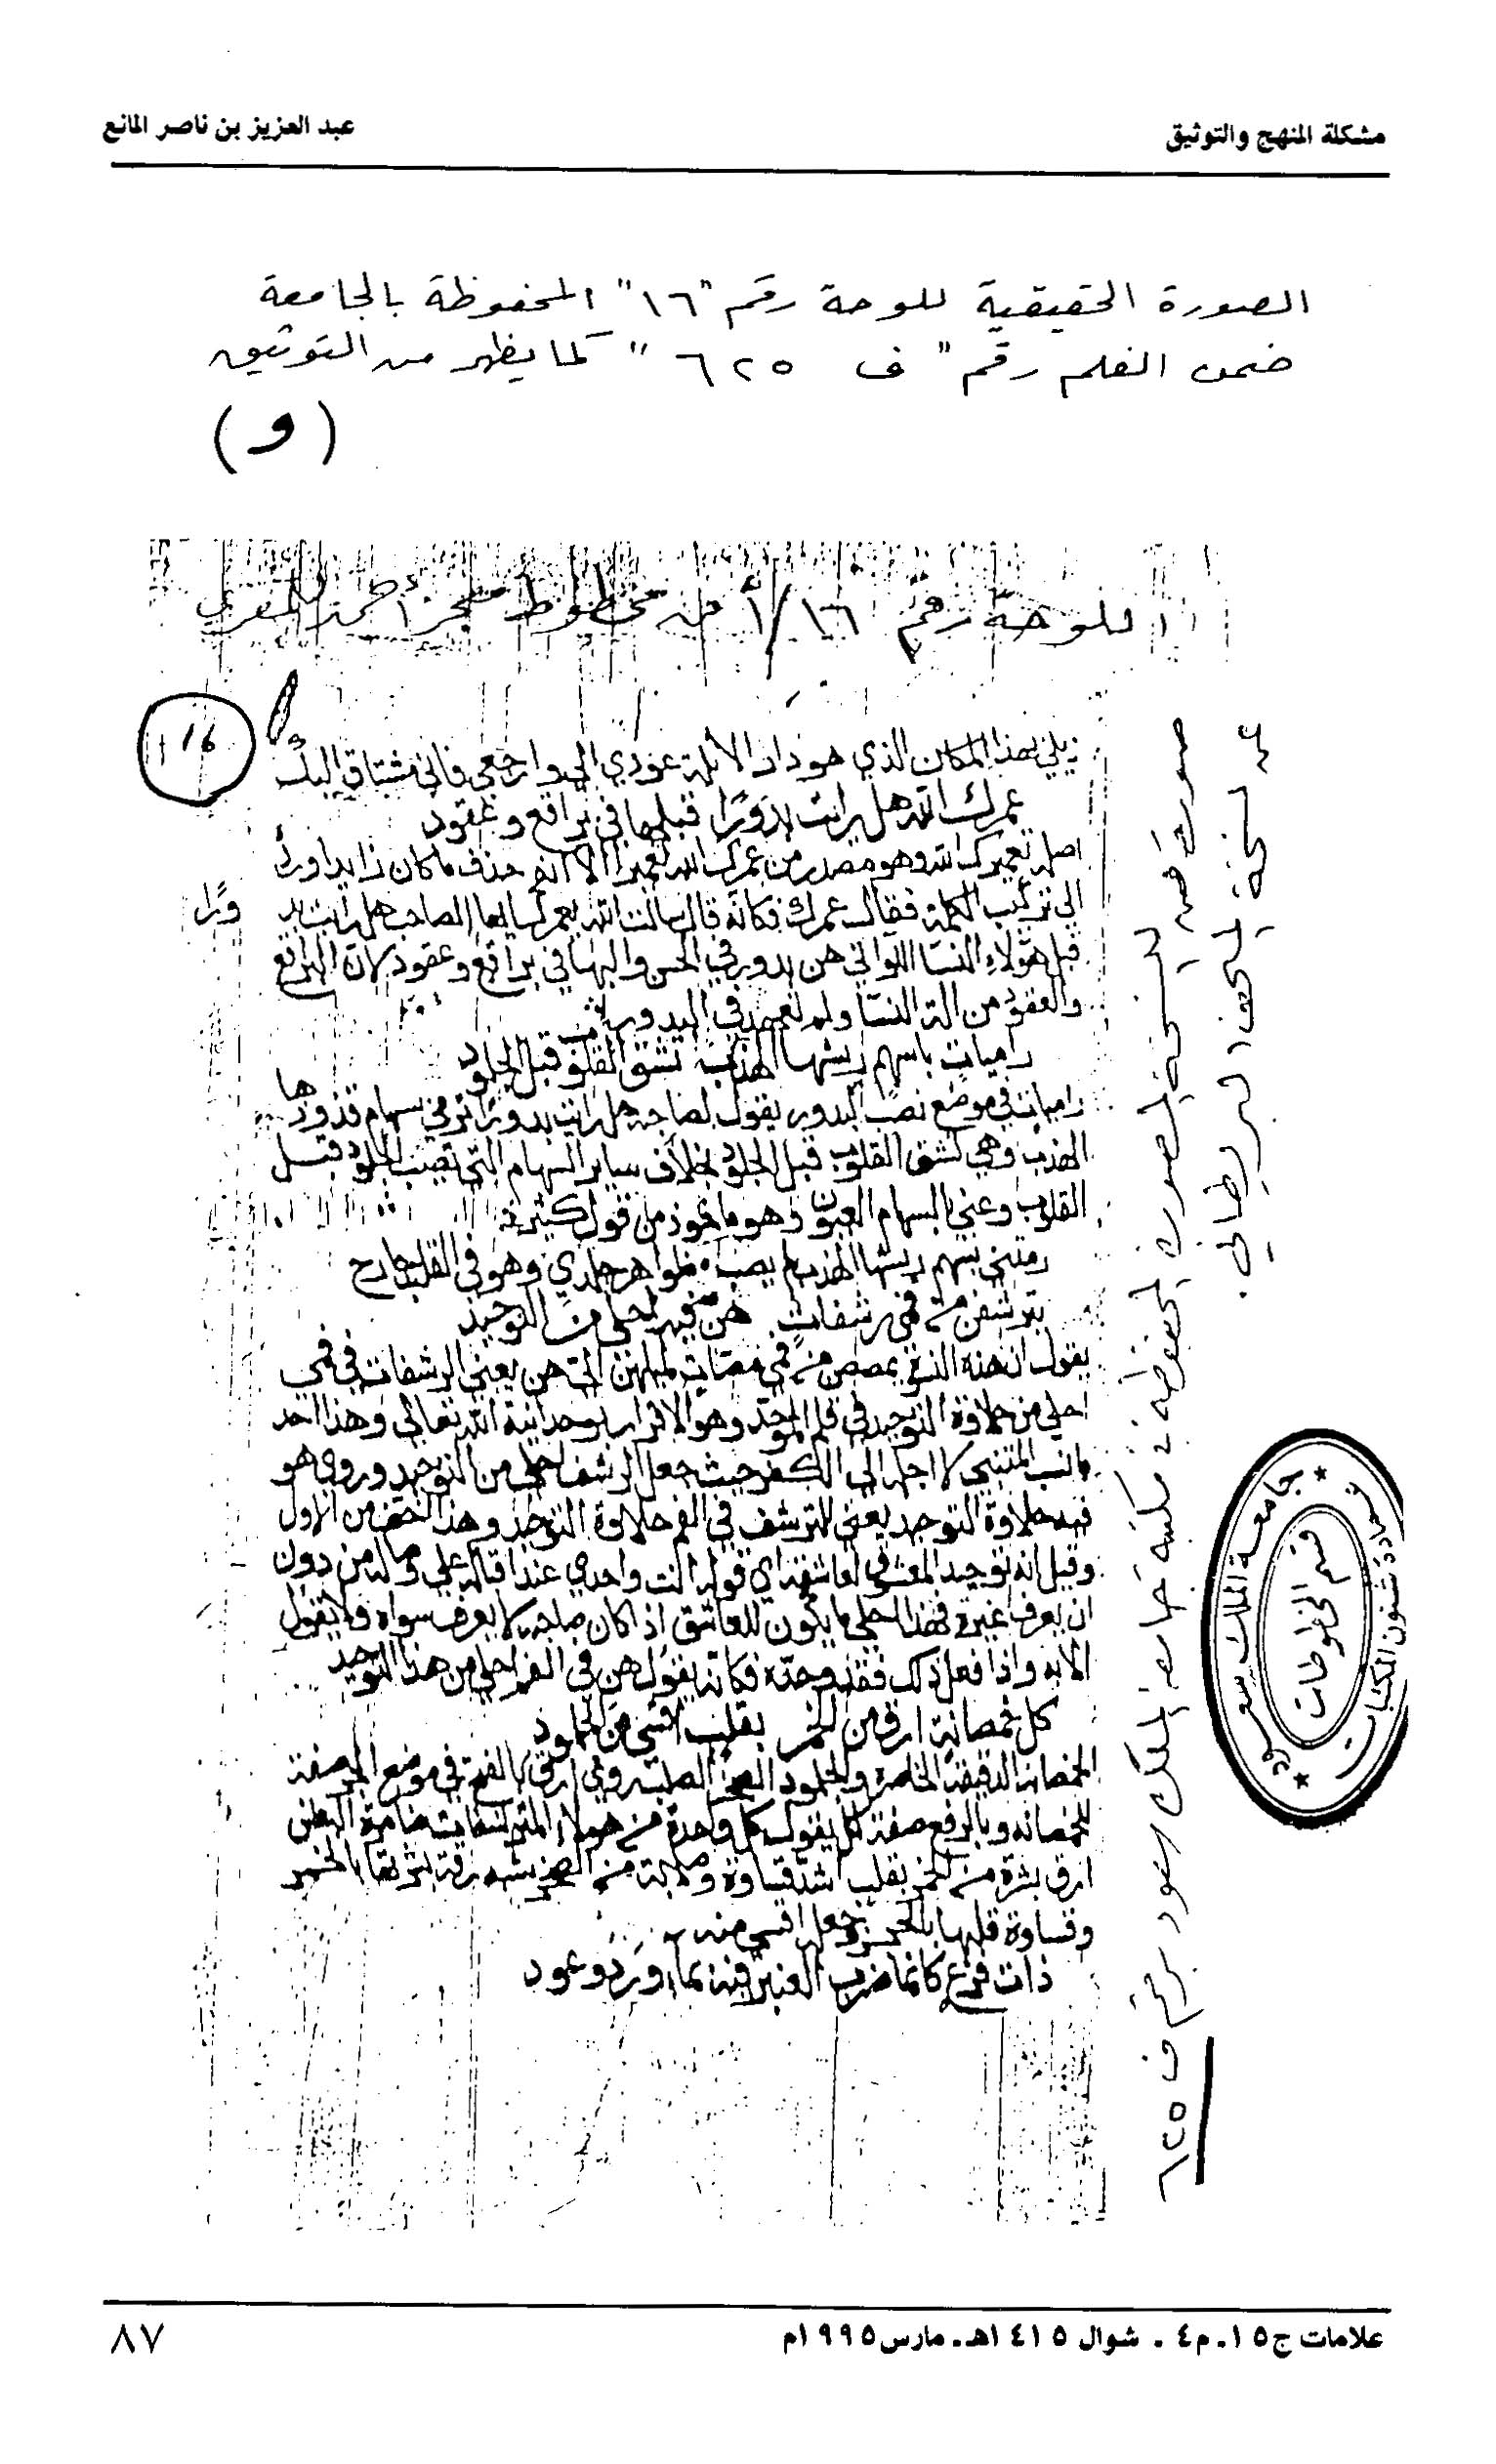 مشكلة المنهج والتوثيق
عبد العزيز بن ناصر المانع
الصورة الحقيقية للوحة رقم "١٦" المحفوظة بالجامعة
ضمن الفلم رقم "ف ٦٢٥" كما يظهر من التوثيق
(و)
اللوحة رقم ١٦/أ من مخطوط معجز أحمد للمعري
16
يلني بهذا المكان الذي هو دار الاثلة عودي الي وارجعي فاني مشتاق اليك
عمرك الله هل رايت بدورا قبلها في براقع وعقود
اصله تعميرك الله وهو مصدر من عمرك الله تعميرا الا انه حذف ما كان زايدا ورد
الي تركيب الكلمة فقال عمرك فكانه قال سالت الله يعمرك ايها الصاحب هل رايت بد
ورا
قبل هؤلاء النسا اللواتي هن بدور في الحسن والبها في براقع وعقود لان البراقع
والعقود من الة النسا ولم تعهد في البدور
راميات باسهم ريشها الهذب تشق القلوب قبل الجلود
راميات في موضع نصب لبدور يقول لصاحبه هل رايت بدورا ترمي بسهام قذورها
الهذب وهي تشق القلوب قبل الجلود بخلاف ساير السهام التي تصيب الجلود قبل
القلوب وعني بالسهام العيون وهو ماخوذ من قول كثير
رمتني بسهم ريشها الهذب لم يصب ظواهر جلدي وهو في القلب جارح
يترشفن من فمي رشفات هن فيه احلى من التوحيد
يقول ان هذه النسوة يمصصن من فمي مصات لميلهن الي هن يعني الرشفات في فمي
احلي من حلاوة التوحيد في فم الموحد وهو الاقرار بوحدانية الله تعالي وهذا احد
ما نسب المتنبي لاجله الي الكفر حيث جعل الرشف احلى من التوحيد وروي هو
فيه حلاوة التوحيد يعني الترشف في الفم حلاوة التوحيد وهذا اخف من الاول
وقيل انه توحيد المعشوق لعاشقه اي قوله انت واحدي عند اقباله علي وصاله من دون
ان يعرف غيره فهذا احلى ما يكون للعاشق اذا كان صاحبه لا يعرف سواه ولا يقول
الا به واذا فعل ذلك فقد وحده فكانه يقول هن في الفم احلي من هذا التوحيد
كل خمصانة ارق من الخمر بقلب اقسى من الجلمود
الخمصانة الدقيقة الخاصرة والجلمود الصخر الصلب وروي ارق بالفتح في موضع الجر صفة
للخمصانه وبالرفع صفة لكل يقول كل واحدة من هولاء المترشفات ضامرة البطن
ارق بشرة من الخمر بقلب اشد قساوة وصلابة من الصخر شبه رقة بشرتها بالخمر
وقساوة قلبها بالحجر وجعله اقسى منه
ذات فرع كانما ضرب العنبر فيه بماء ورد وعود
صورت هذه النسخة المصورة المحفوظة في مكتبة جامعة الملك سعود برقم ف ٦٢٥
عن نسخة المتحف البريطاني.
جامعة الملك سعود
عمادة شئون المكتبات
قسم المخطوطات
علامات ج١٥، م٤، شوال ١٤١٥هـ، مارس ١٩٩٥م
٨٧